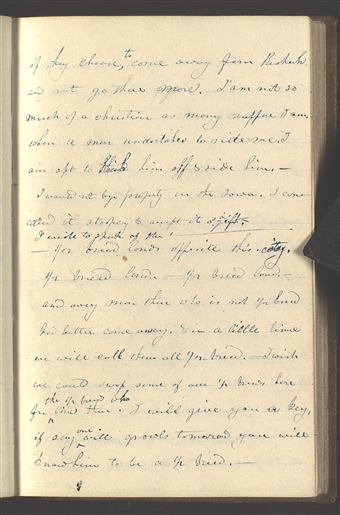 if they choose, to come away from Keokuk
and not go there more. I am not so
much of a christian as many suppose I am
when a man undertakes to ride me I
am apt to kick him off & ride him. —
I would not buy property in the Iowa. I con-
sidered it stooping to accept it a gift.
I wish to speak of the!
— ½ breed lands opposite this city.
½ breed lands — ½ breed lands —
and every man there who is not ½ breed
had better come away. & in a little time
we will call them all ½ breed. — I wish
we could swap some of our ½ breeds here
for the ½ breeds who live there. I will give you a key,
if any one will growl tomorrow you will
know him to be a ½ breed. —